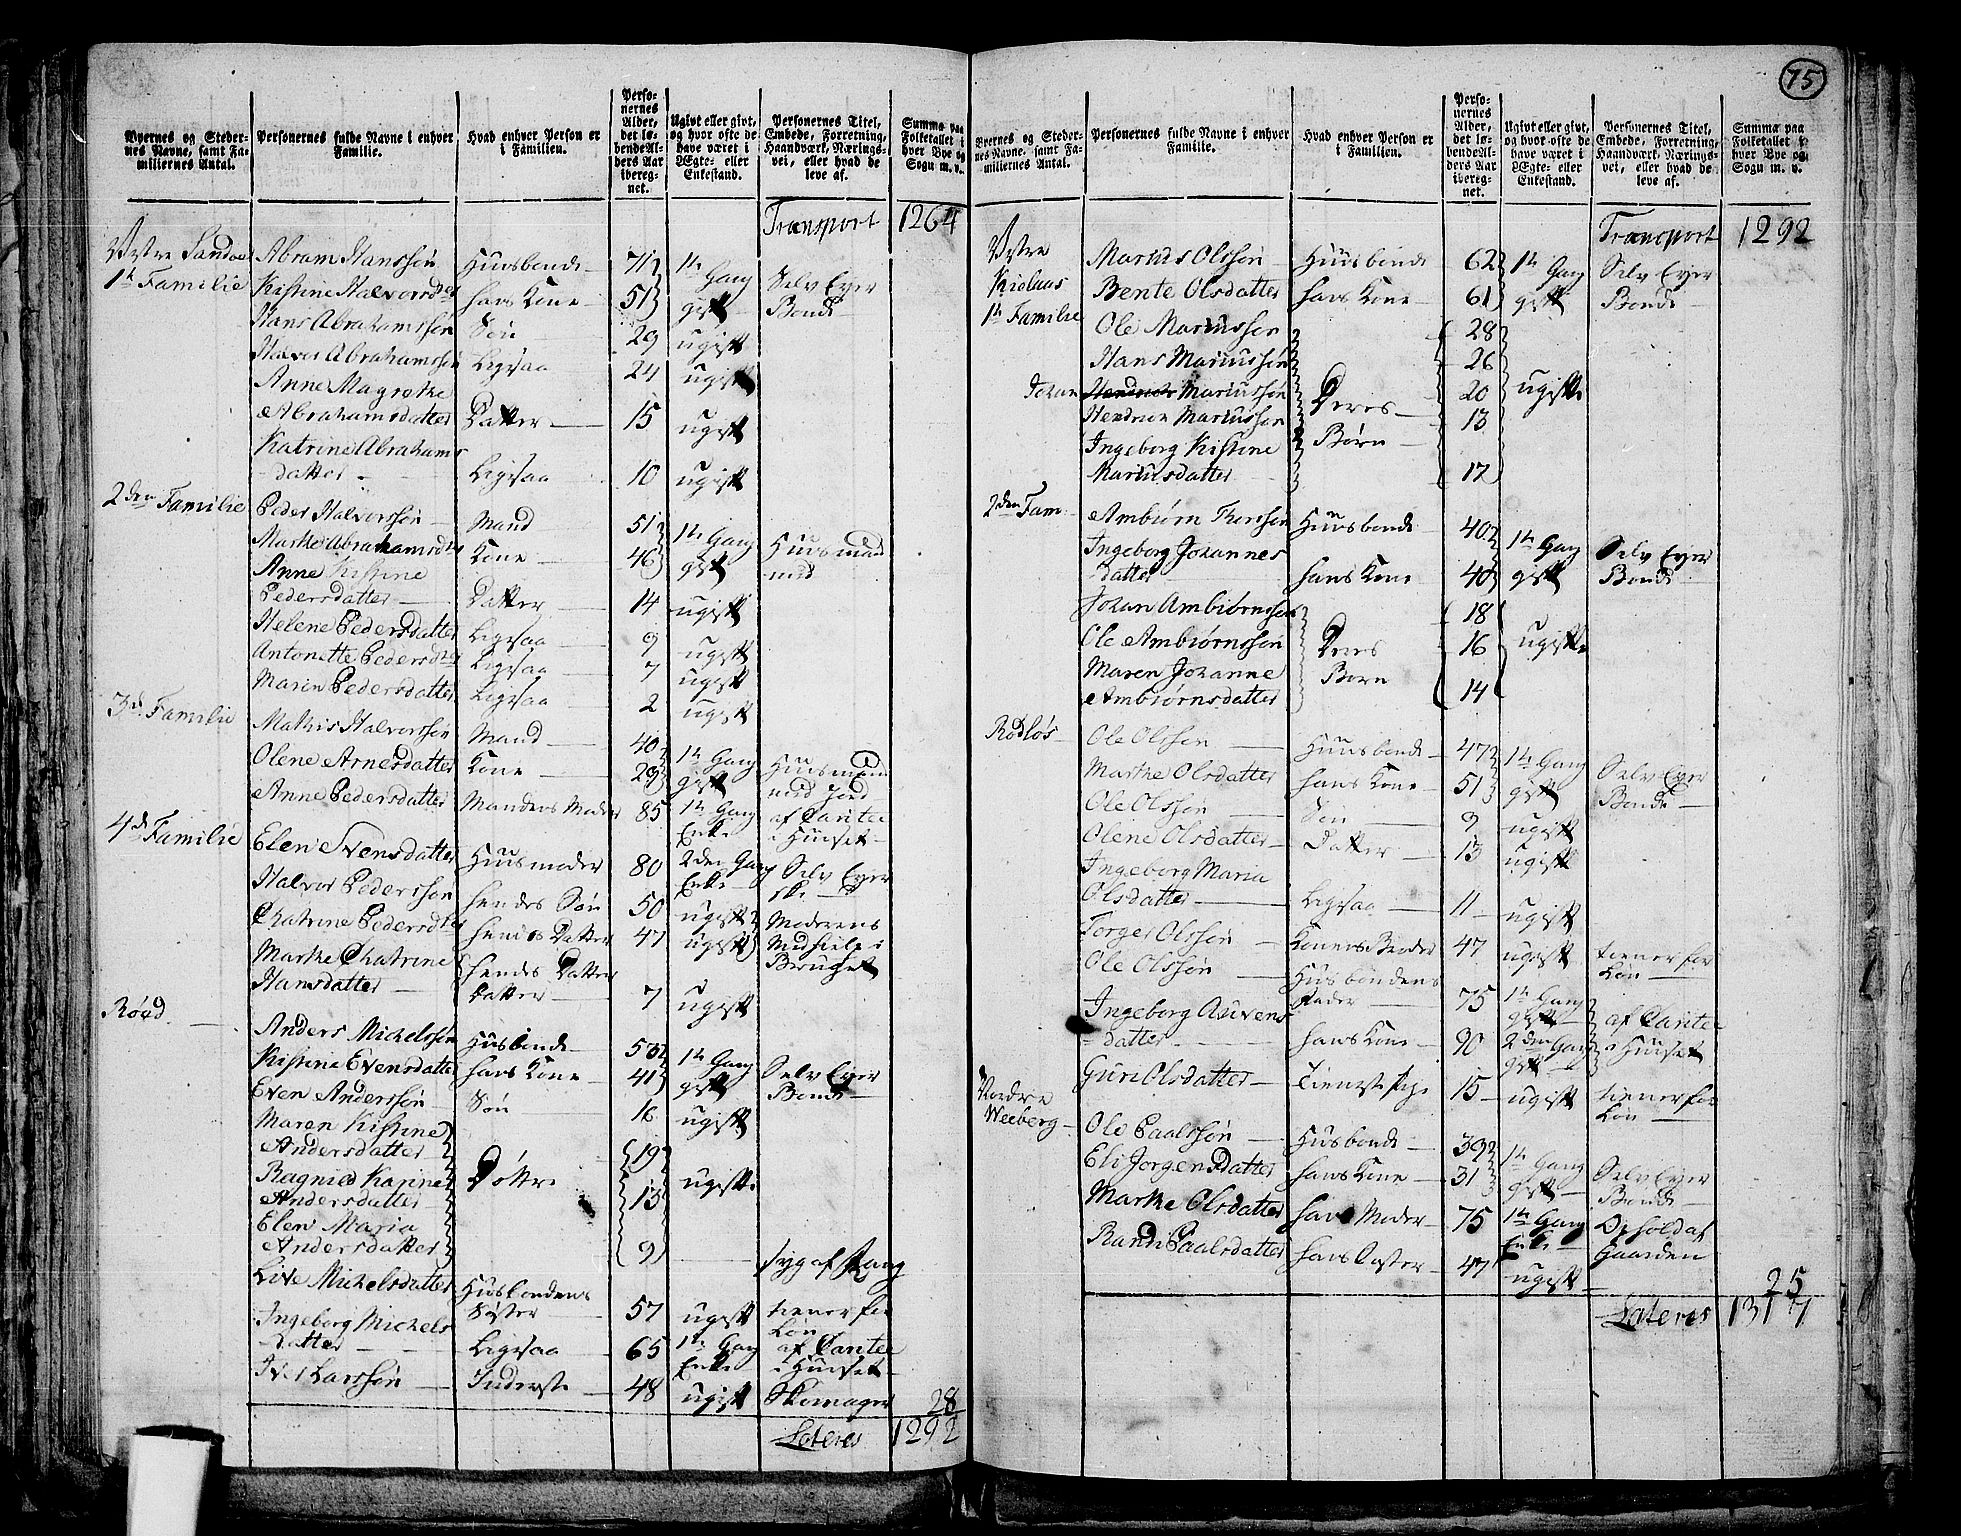 75
Byernes og Stedernes Navne, samt Familiernes Antal. | Personernes fulde Navne i enhver Familie. | Hvad enhver Person er i Familien. | Personernes Alder, det løbende Alders Aar iberegnet. | Ugivt eller givt, og hvor ofte de have været i Ægte- eller Enkestand. | Personernes Titel, Embede, Forretning, Haandværk, Næringsvei, eller hvad de leve af. | Summa paa Folketallet i hver Bye og Sogn m. v.
Transport 1264
Vestre Sandøe Abram Hanssøn Huusbonde 71 1te Gang Selv Eyer
1te Familie Kistine Halvorsdtr hans Kone 51 gift Bonde
Hans Abrahamssøn Søn 29 ugift
Halvor Abrahamssøn Ligesaa 24 ugift
Anne Magrethe
Abrahamsdatter Datter 15 ugift
Katrine Abrahams
datter Ligesaa 10 ugift
2den Familie Peder Halvorssøn Mand 51 1te Gang Huusmand
Marthe Abrahamsdtr Kone 46 gift med
Anne Kistine
Pedersdatter Datter 14 ugift
Helene Pedersdatter Ligesaa 9 ugift
Antonette Pedersdtr Ligesaa 7 ugift
Maren Pedersdatter Ligesaa 2 ugift
3de Familie Mathis Halvorssøn Mand 40 1te Gang Huusmand
Olene Arnesdatter Kone 29 gift med Jord
Anne Pedersdatter Mandens Moder 85 1te Gang Enke af Cantee i Huuset
4de Familie Elen Svensdatter Huusmoder 80 2den Gang Enke Selv Eyer ske
Halvor Pederssøn hendes Søn 50 ugift Moderens
Chatrine Pedersdtr hendes Datter 47 ugift Medhielp i
Marthe Chatrine hendes Datters Bruget
Hansdatter Datter 7 ugift
Røød Anders Michelssøn Husbonde 1te Gang Selv Eyer
Kistine Evensdatter hans Kone 41 gift Bonde
Even Anderssøn Søn 16 ugift
Maren Kistine
Andersdatter 19
Ragnild Karine Døttre ugifte
Andersdatter 13
Elen Maria
Andersdatter 9 syg af Trang
Live Michelsdatter Husbondens
Søster 57 ugift tiener for Løn
Ingeborg Michels
datter Ligesaa 65 1te Gang Enke af Cantee i Huuset
Iver Larssøn Inderste 48 ugift Skomager 28
Lateres 1292
Byernes og Stedernes Navne, samt Familiernes Antal. | Personernes fulde Navne i enhver Familie. | Hvad enhver Person er i Familien. | Personernes Alder, det løbende Alders Aar iberegnet. | Ugivt eller givt, og hvor ofte de have været i Ægte- eller Enkestand. | Personernes Titel, Embede, Forretning, Haandværk, Næringsvei, eller hvad de leve af. | Summa paa Folketallet i hver Bye og Sogn m. v.
Transport 1292
Vestre Marius Olssøn Huusbonde 62 1te Gang Selv Eyer
Kiølaas Bente Olsdatter hans Kone 61 gift Bonde
1te Familie Ole Mariussøn 28
Hans Mariussøn 26
Johan Mariussøn Deres 20 ugifte
Hendrich Mariussøn 13
Ingeborg Kistine Børn
Mariusdatter 17
2den Fam Ambiørn Thorssøn Huusbonde 40 1te Gang Selv Eyer
Ingeborg Johannes
datter hans Kone 40 gift Bonde
Johan Ambiørnssøn 18
Ole Ambiørnssøn Deres 16 ugifte
Maren Johanne Børn
Ambiørnsdatter 14
Rødløs Ole Olssøn Huusbonde 47 1te Gang Selv Eyer
Marthe Olsdatter hans Kone 51 gift Bonde
Ole Olssøn Søn 9 ugift
Olene Olsdatter Datter 13 ugift
Ingeborg Maria
Olsdatter Ligesaa 11 ugift
Torger Olssøn Konens Broder 47 ugift tiener for Løn
Ole Olssøn Husbondens
Fader 75 1te Gang gift af Cantee
Ingeborg Auvens
datter hans Kone 90 2den Gang gift i Huuset
Guri Olsdatter Tieneste pige 15 ugift tiener for Løn
Nordre
Weeberg Ole Paalssøn Husbonde 39 1te Gang Selv Eyer
Eli Jorgensdatter hans Kone 31 gift Bonde
Marthe Olsdatter hans Moder 75 1te Gang Enke Ophold af
Randi Paalsdatter hans Søster 47 ugift Gaarden
25
Lateres 1317